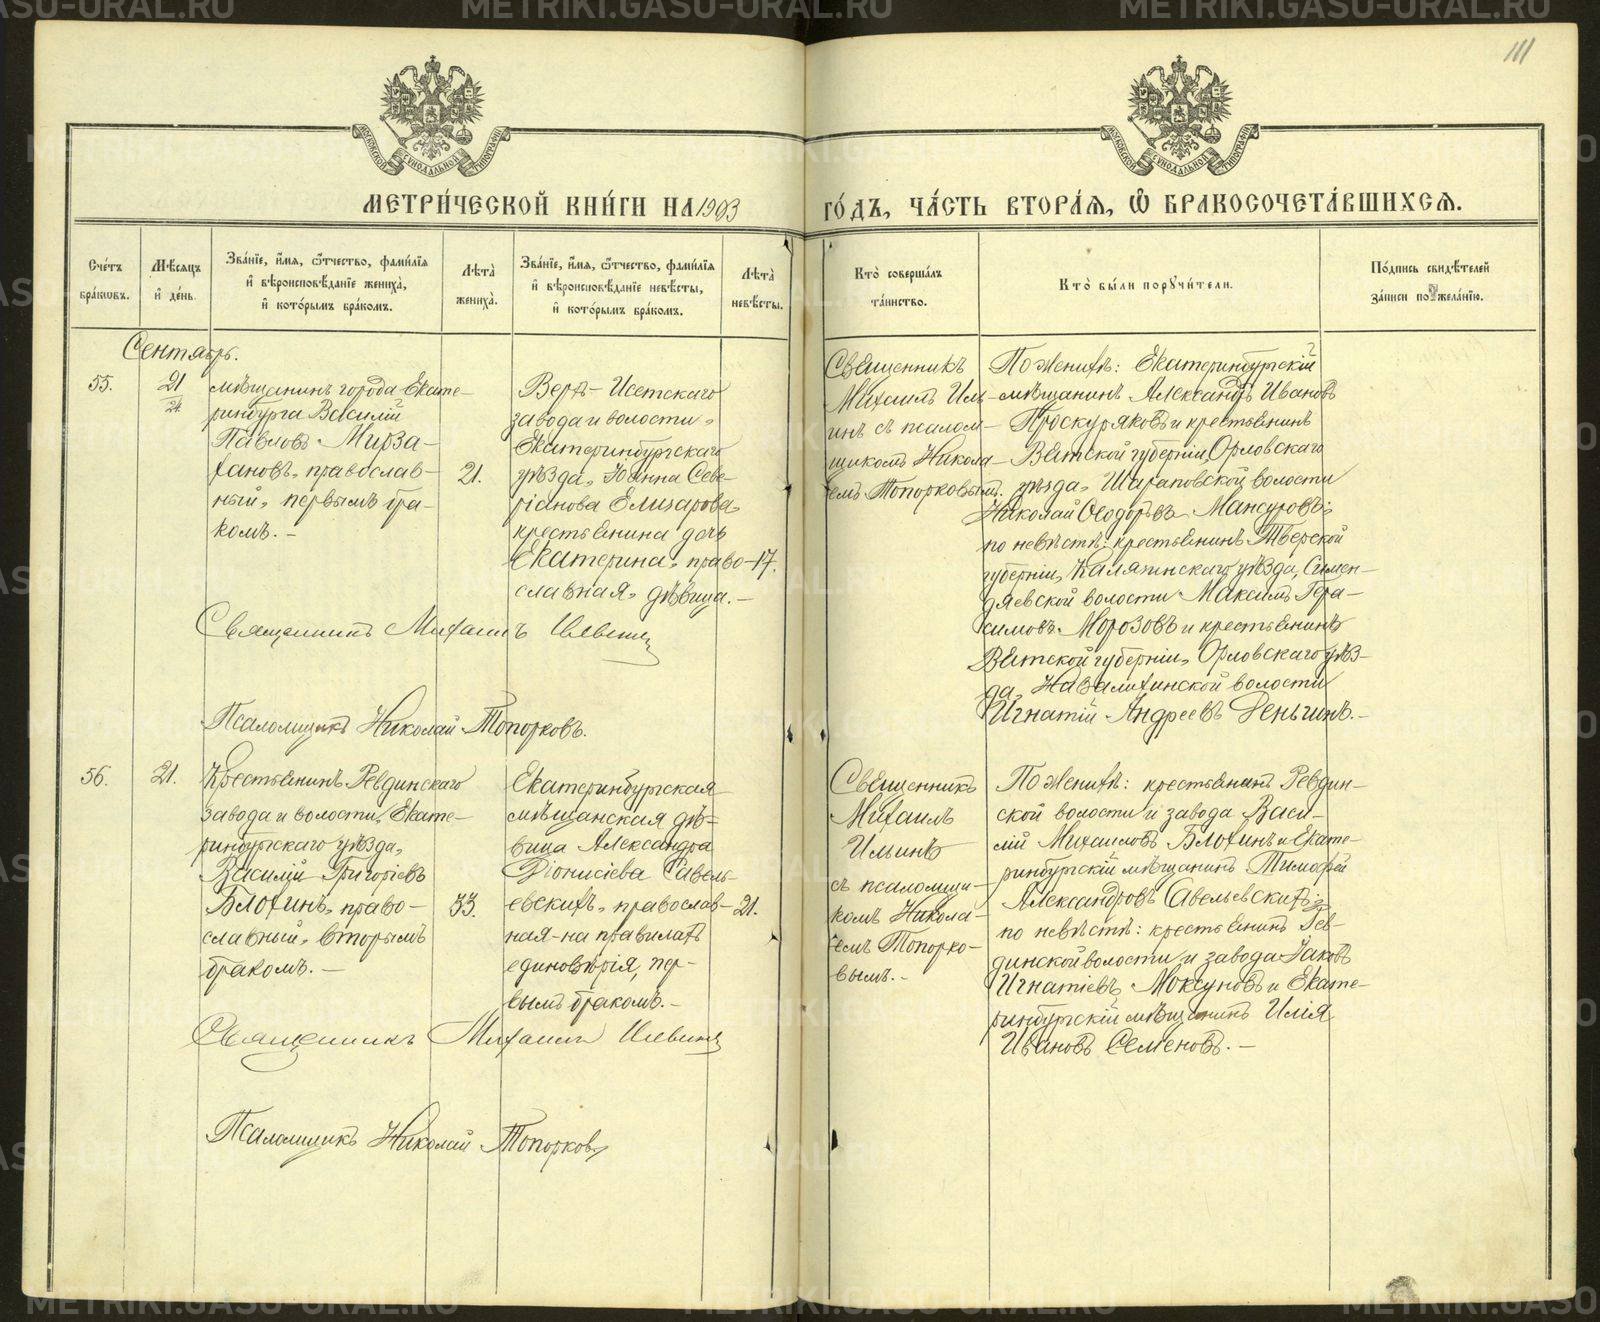 111
МЕТРИ́ЧЕСКОЙ КНИ́ГИ НА 1903
ГО́ДЪ, ЧА́СТЬ ВТОРА́Я, Ѡ БРАКОСОЧЕТА́ВШИХСЯ.
Сче́тъ
бра́ковъ.
Мѣ́сяцъ
и́ де́нь.
Зва́нїе, и́мя, ѻ҆́тчество, фами́лїя
и҆ вѣроисповѣ́данїе жениха̀,
и҆ кото́рымъ бра́комъ.
Лѣ́та
жениха̀.
Зва́нїе, и́мя, ѻ҆́тчество, фами́лїя
и҆ вѣроисповѣ́данїе невѣ́сты,
и҆ кото́рымъ бра́комъ.
Лѣ́та
невѣ́сты.
Кто̀ соверша́лъ
та́инство.
Кто̀ бы́ли пору́чители.
По́дпись свидѣ́телей
за́писи по жела́нїю.
Сентябрь.
55.
21
24
мѣщанинъ города Екате-
ринбурга Василій
Павловъ Мирза-
хановъ, православ-
ный, первымъ бра-
комъ. –
21.
Верх- Исетскаго
завода и волости,
Екатеринбургскаго
уѣзда, Юанна Севе-
ріанова Елизарова,
крестьянина дочь
Екатерина, право-
славная, дѣвица. –
17.
Священникъ
Михаилъ Иль-
инъ съ псалом-
щикомъ Никола-
емъ Топорковымъ.
По женихѣ: Екатеринбургскій
мѣщанинъ Александръ Ивановъ
Проскуряковъ и крестьянинъ
Вятской губерніи, Орловскаго
уѣзда, Шараповской волости
Николай Ѳеодоровъ Мансуровъ;
по невѣстѣ: крестьянинъ Тверской
губерніи, Калязинскаго уѣзда, Симен-
дяевской волости Максимъ Гера-
симовъ Морозовъ и крестьянинъ
Вятской губерніи, Орловскаго уѣз-
да, волости
Игнатій Андреевъ Деньгинъ. –
Священникъ Михаилъ Ильинъ
Псаломщикъ Николай Топорковъ.
56.
21.
Крестьянинъ Ревдинскаго
завода и волости, Екате-
ринбургскаго уѣзда,
Василій Григоріевъ
Блохинъ, право-
славный, вторымъ
бракомъ. –
33.
Екатеринбургская
мѣщанская дѣ-
вица Александра
Діонисіева Савель-
евскихъ, православ-
ная на правилахъ
единовѣрія, пер-
вымъ бракомъ. –
21.
Священникъ
Михаилъ
Ильинъ
съ псаломщи-
комъ Никола-
емъ Топорко-
вымъ. –
По женихѣ: крестьянинъ Ревдин-
ской волости и завода Васи-
лій Михаиловъ Блохинъ и Екате-
ринбургскій мѣщанинъ Тимофей
Александровъ Савельевскихъ;
по невѣстѣ: крестьянинъ Рев-
динской волости и завода Іаковъ
Игнатіевъ Моксуновъ и Екате-
ринбургскій мѣщанинъ Илія
Ивановъ Семеновъ. –
Священникъ Михаилъ Ильинъ
Псаломщикъ Николай Топорковъ
METRIKI.GASU-URAL.RU